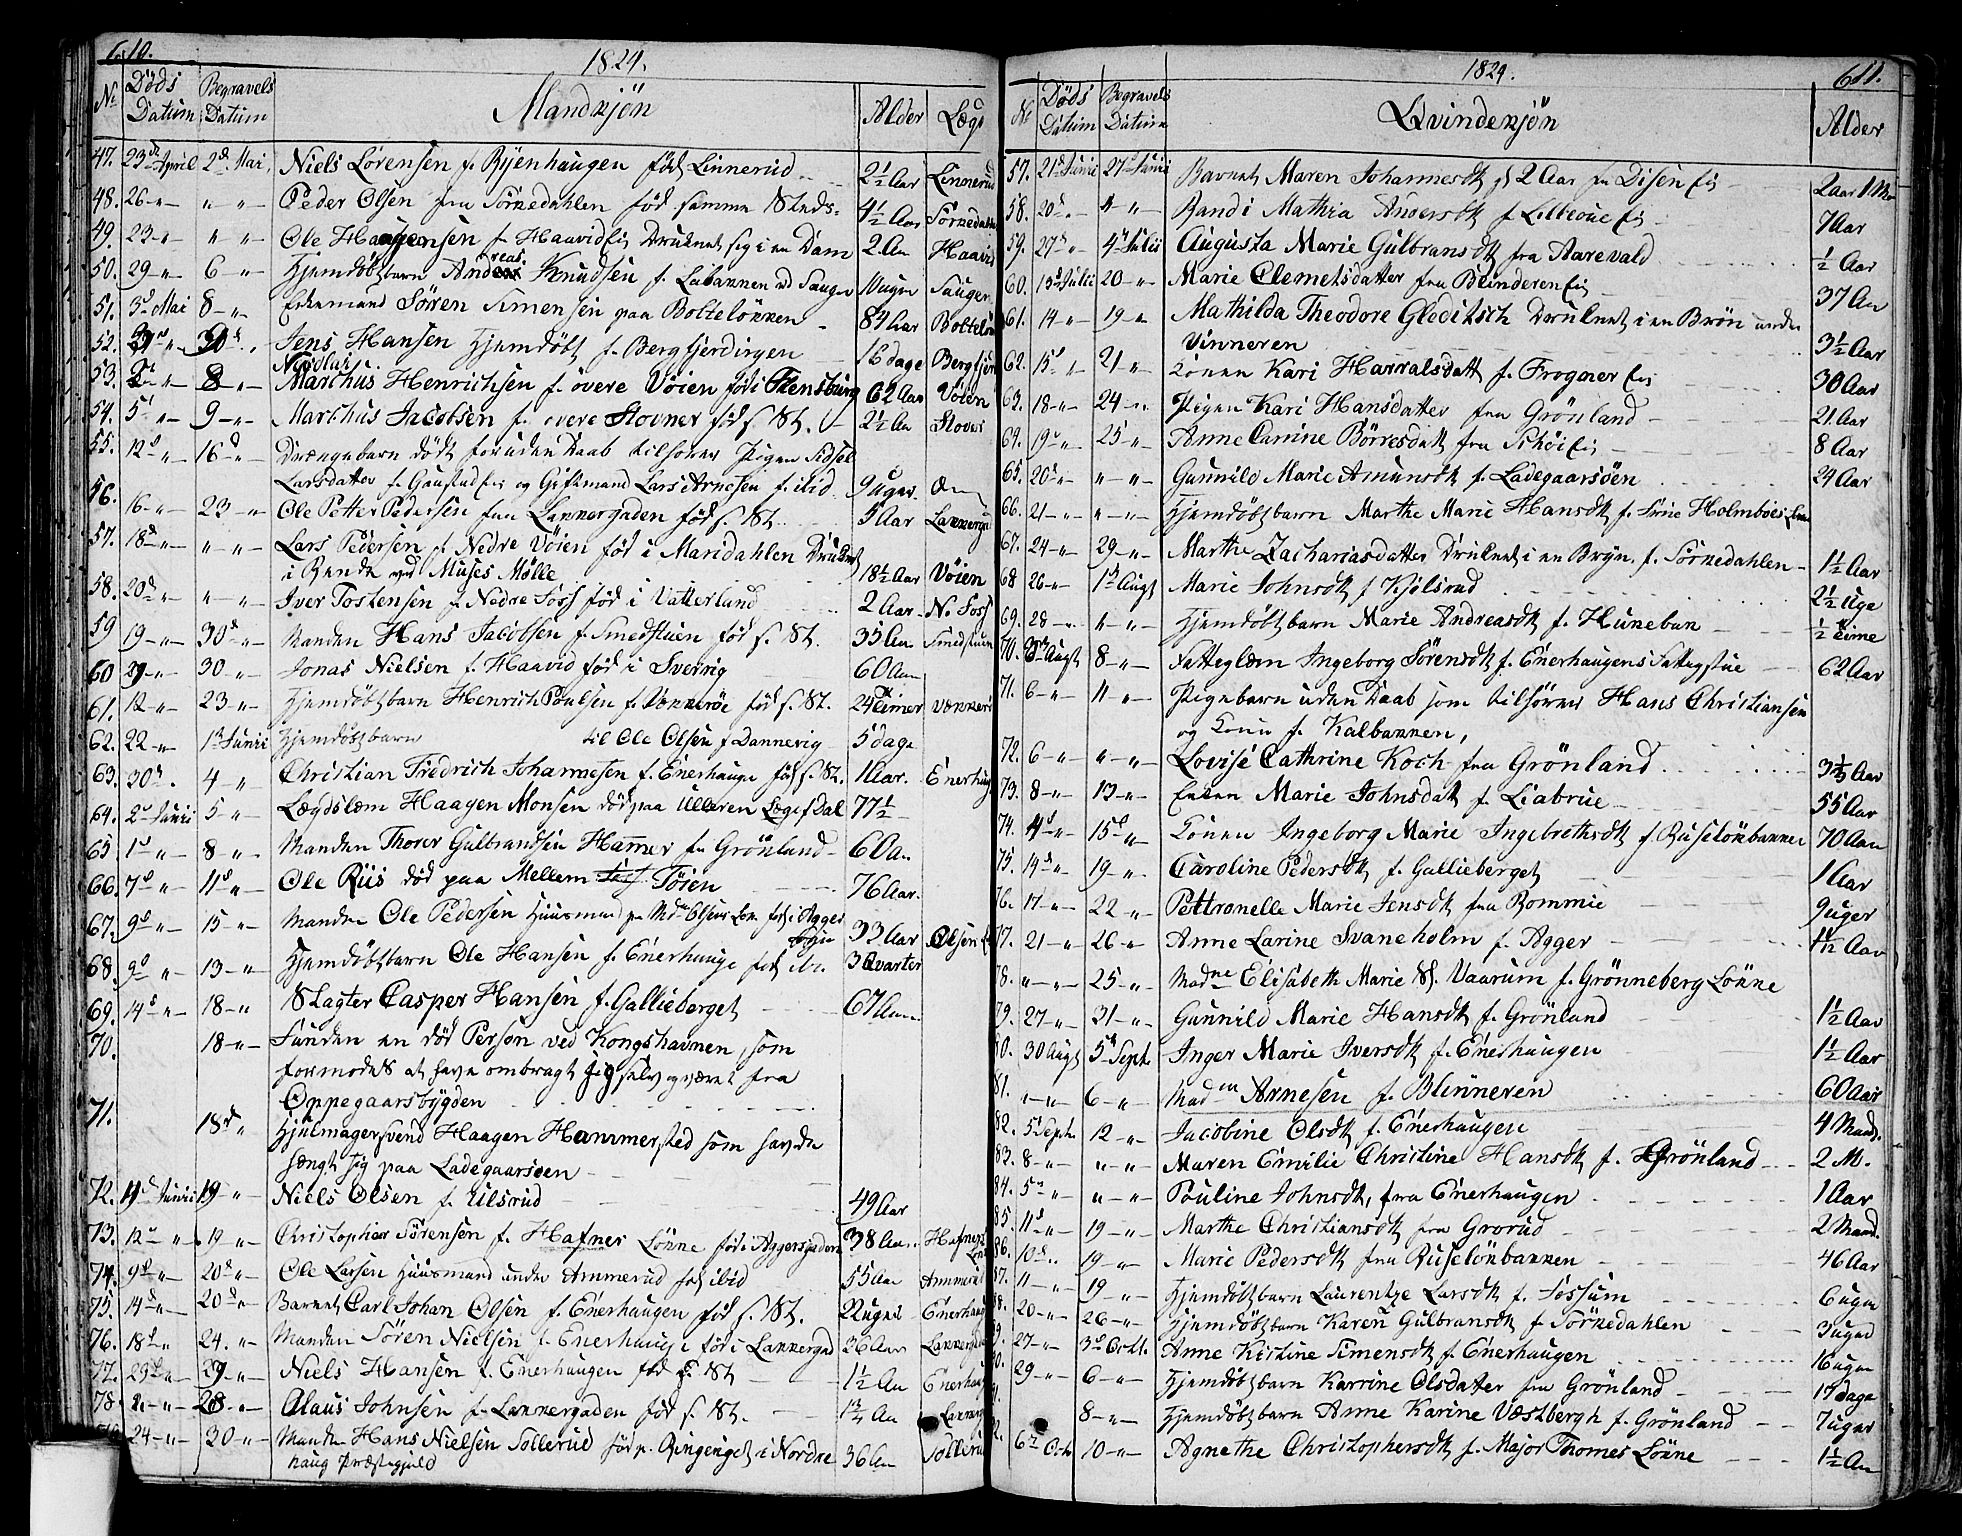 610.
1824.
No Döds Datum Begravels Datum Mandkjön Alder Lægd
47. 23de April 2d Mai Niels Lörensen f. Byenhaugen föd Linnerud 2½ Aar Linnerud
48. 26 " " " Peder Olsen fra Sörkedahlen föd samme Steds 4½ Aar Sörkedahlen
49. 23 " " " Ole Haagensen f. Haavid Eie Druknet sig i en Dam 2 Aar Haavid
50. 29 " 6 " Hjemdöbt barn Andreas Knudsen f. Lübakken ved Sauger 10 uger Sauger
51. 3d Mai 8 " Enkemand Sören Simensen paa Bolteløkken 84 Aar Bolteløk
52. " 30 " Jens Hansen Hjemdöbt f. Bergfjerdingen 16 dage Bergfjer
53. " 8 " Marchus Henrichsen f. övere Vöien föd i Flensburg 62 Aar Vöien
54. 5 " 9 " Marchus Jacobsen f. övere Stovner föd s. St. 2½ Aar Stovner
55. 12d " 16d " Drengebarn dödt foruden Daab tilhörer Pigen Sidsel
Larsdatter f. Gaustad Eie og Giftmand Lars Arnesen f. ibid 9 uger
56. 16 " 23 " Ole Petter Pedersen fra Lakkergaden föd s. St. 5 Aar Lakkerga
57. 18d " " " Lars Pedersen f. Nedre Vöien föd i Maridahlen Druknet
i Rende ved Muses Mølle 18½ Aar Vöien
58. 20d " " " Iver Tostensen f. Nedre Foss föd i Vatterland 2 Aar N. Foss
59 19 " 30d " Manden Hans Jacobsen f. Smedstuen föd s. St. 35 Aar Smedstuen
60 29 " 30 " Jonas Nielsen f. Haavid föd i Sverrig 60 Aar
61. 12 " 23 " Hjemdöbt barn Henrich Poulsen f. Vækkeröe föd s. St. 24 Timer Vækkerö
62. 22 " 1d Junii Hjemdöbt barn til Ole Olsen f Dannevig 5 dage
63. 30d " 4 " Christian Fredrich Johannesen f. Enerhauge föd s. St. 1 Aar. Enerhaug
64. 2d Junii 5 " Lægdslem Haagen Monsen död paa Ulleren Lege f Dal 77½
65 1d " 8 " Manden Thorer Gulbrandsen Hammer fra Grönland 60 a
66. 7d " 11d " Ole Riis död paa Mellem Töien 76 Aar.
67. 9d " 15 " Manden Ole Pedersen Huusmand p. Md Olsens Lön föd i Agger 33 Aar Olsen L
68. 9d " 13 " Hjemdöbt barn Ole Hansen f. Enerhauge föd ib. 3 Qvarter
69. 14d " 18 " Slagter Casper Hansen f. Gallieberget 67 Aar
70. 18 " Funden en död Person ved Kongshavnen, som
formodes at have ombragt sig selv og været fra
Oppegaarsbygden
71. 18d " Hjulmagersvend Haagen Hammersted som havde
hængt sig paa Ladegaarsöen
72. 11d Junii 19 " Niels Olsen f. Ulsrud 49 Aar
73. 12 " 19 " Christopher Sörensen f. Hafners Lönne föd i Aggersgaden 38 Aar Hafners Lön
74. 9d " 20d " Ole Larsen Huusmand under Ammerud föd ibid 55 Aar Ammerud
75. 14d " 20d " Barnet Carl Johan Olsen f. Enerhaugen föd s. St. 22 uger Enerhaug
76. 18d " 24. " Manden Sören Nielsen f. Enerhauge föd i Lakkergad 36 Aar Lakkerga
77. 23d " 29 " Niels Hansen f. Enerhaugen föd s. St. 1½ Aar Enerhau
78. " " 28 " Claus Johnsen f. Lakkergaden föd s. St. 1¾ Aar Lakkerg
24 " 30 " Manden Hans Nielsen Tollerud föd p. Ringeriget i Nordre 36 Aar Tollerud
haug Præstegjeld
1824. 611.
No Döds Datum Begravels Datum Qvindekjön Alder
57. 21d Junii 27d Junii Barnet Maren Johannesdt f 2 Aar fra Disen Eie 2 Aar 1 M
58. 20d " " " Randi Mathia Andersdt f Lilleoue Eie 7 Aar
59. 27d " 4d Julii Augusta Marie Gulbransdt fra Aarevald ½ Aar
60. 13d Julii 20 " Marie Clemetsdatter fra Blinderen Eie 37 Aar
61. 14 " 19 " Mathilda Theodore Gleditsch Druknet i en Brön under
Vinneren 3½ Aar
62. 15d " 21 " Konen Kari Harralsdatt f. Frogner Eie 30 Aar
63. 18 " 24 " Pigen Kari Hansdatter fra Grönland 21 Aar
64. 19d " 25 " Anne Carrine Börresdatt fra Sköi Eie 8 Aar
65. 20d " " " Gunnild Marie Amunsdt f. Ladegaarsöen 24 Aar
66. 21 " " " Hjemdöbt barn Marthe Marie Hansdt f. Frue Holmboes
67. 24 " 29 " Marthe Zachariasdatter Druknet i en Bryn. f. Sörkedahlen 1½ Aar
68 26 " 1d Augt Marie Johnsdt f Kjölsrud 2½ Uge
69. 28 " " " Hjemdöbt barn Marie Andreasdt f. Hunebæk ½ Time
70. Augt 8 " Fattiglem Ingeborg Sörensdt f. Enerhaugens Fattigstue 62 Aar
71. 6 " 11 " Pigebarn uden Daab som tilhörer Hans Christiansen
og Kone f. Kalbakken,
72. 6 " " " Lovise Cathrine Koch fra Grönland Aar
73. 8 " 13 " Enken Marie Johnsdat f. Liabrue 55 Aar
74. 4d " 15d " Konen Ingeborg Marie Ingebrethsdt f. Ruselökbakken 70 Aar
75. 14d " 19 " Caroline Pedersdt f. Gallieberget 1 Aar
76. 17 " 22 " Pettronelle Marie Jensdt fra Bommie 9 uger
77. 21 " 26 " Anne Larine Svaneholm f. Agger Aar
78. " " 25 " Madme Elisabeth Marie Sl. Vaarum f. Grönneberg Lönne
79. 27 " 31 " Gunnild Marie Hansdt f. Grönland 1½ Aar
80. 30 Augt 5d Sept. Inger Marie Iversdt f. Enerhaugen 1½ Aar
81. " " 6 " Madm Arnesen f. Blinneren 60 Aar
82. 5 Septr 12 " Jacobine Olsdt f. Enerhaugen 4 Maad.
83. 8 " " " Maren Emilie Christine Hansdt f. Grönland 2 M.
84. 5 " " " Pouline Johnsdt, fra Enerhaugen 1 Aar
85. 11d " 19 " Marthe Christiansdt fra Grorud 2 Maad.
86. 10d " 19 " Marie Pedersdt fra Ruselökbakken 46 Aar
87. 11 " 19 " Hjemdöbt barn Laurentze Larsdt f. Fossum 6 uger
88. 20 " 26 " Hjemdöbt barn Karen Gulbransdt f Sörkedahlen 3 uger
27 " 3d Octr. Anne Kistine Simensdt f. Enerhaugen 16 uger
29 " 6 " Hjemdöbt barn Karrine Olsdatter fra Grönland 17 dage
8 " Hjemdöbt barn Anne Karine Vestbergh f. Grönland 7 uger
6 Oct 10 " Agnethe Christophersdt f. Major Thomes Lönne 1½ Aar